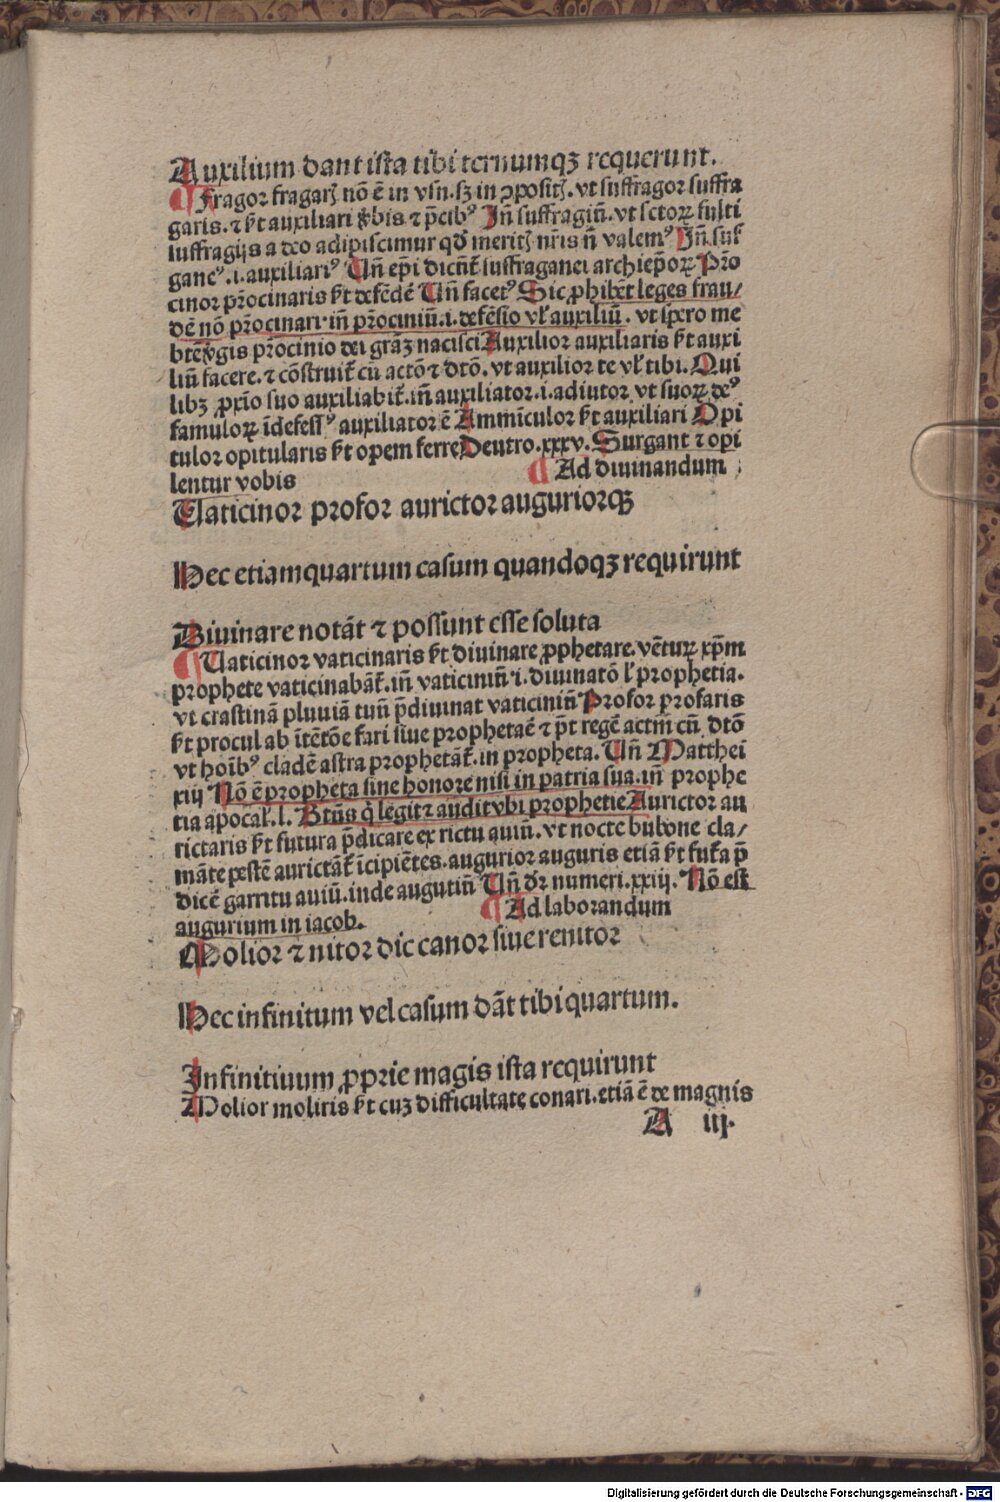 Auxilium dant ista tibi ternumqꝫ requerunt.
¶ Fragor fragarꝭ nō ē in vsu. sꝫ in ꝯpositꝭ. vt suffragor suffra
garis. ⁊ ſt auxiliari ꝟbis ⁊ p̄cibꝰ Iñ suffragiū. vt sctoꝝ fulti
suffragijs a deo adipiscimur qd̓ meritꝭ nr̄is ñ valemꝰ Iñ. suf
ganeꝰ .i. auxiliariꝰ Vñ ep̄i dicūt̄ suffraganei archiep̄oꝝ Pr̄o
cinor pr̄ocinaris ſt defēdē Vñ facetꝰ Sic ꝓhibēt leges frau/
dē nō pr̄ocinari iñ pr̄ociniū .i. defēsio vl̓ auxiliū. vt spero me
btē ꝟgis pr̄ocinio dei grāꝫ nacisci Auxilior auxiliaris ſt auxi
liū facere. ⁊ cōstruit̄ cū actō ⁊ dtō. vt auxilior te vl̓ tibi. Qui
libꝫ ꝓxīo suo auxiliabit̄. iñ auxiliator .i. adiutor vt suoꝝ deꝰ
famuloꝝ īdefessꝰ auxiliator ē Ammīculor ſt auxiliari Opi
tulor opitularis ſt opem ferre Deutro. xxxv. Surgant ⁊ opi
lentur vobis ¶ Ad diuinandum
Vaticinor profor aurictor auguriorqꝫ
Hec etiam quartum casum quandoqꝫ requirunt
Diuinare notāt ⁊ possunt esse soluta
¶ Vaticinor vaticinaris ſt diuinare ꝓphetare. vētuꝝ xp̄m
prophete vaticinabāt̄. iñ vaticiniū .i. diuinatō l̓ prophetia.
vt crastinā pluuiā tuū p̄diuinat vaticiniū Profor profaris
ſt procul ab ītētōe fari siue prophetaē ⁊ p̄t regē actm̄ cū dtō
vt hoīb̓ꝰ cladē astra prophetāt̄. in propheta. Vñ Matthei
xiij Nō ē propheta sine honore nisi in patria sua. iñ prophe
tia apocal̓. l. Btūs q̇ legit ⁊ audit vbi prophetie Aurictor au
rictaris ſt futura p̄dicare ex rictu auiū. vt nocte bubone cla/
māte pestē aurictāt̄ īcipiētes. augurior auguris etiā ſt futa p̄
dicē garritu auiū. inde auguriū Vñ dr̄ numeri. xxiij. Nō est
augurium in iacob. ¶ Ad laborandum
Molior ⁊ nitor dic canor siue renitor
Hec infinitum vel casum dāt tibi quartum.
Infinitiuum ꝓprie magis ista requirunt
Molior moliris ſt cuꝫ difficultate conari. etiā ē de magnis
A iij.
Digitalisierung gefördert durch die Deutsche Forschungsgemeinschaft - DFG